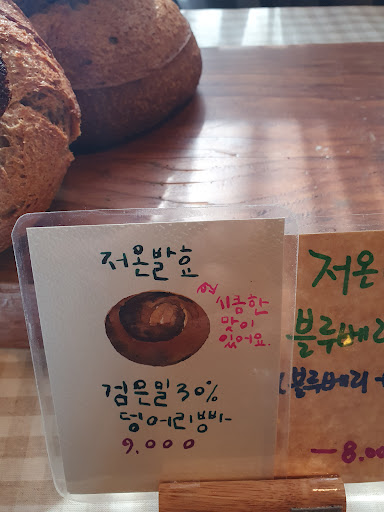 저온발효
시큼한
맛이
있어요.
검은밀 30%
덩어리빵
9,000
저온
블루베리
블루베리 +
- 8.00